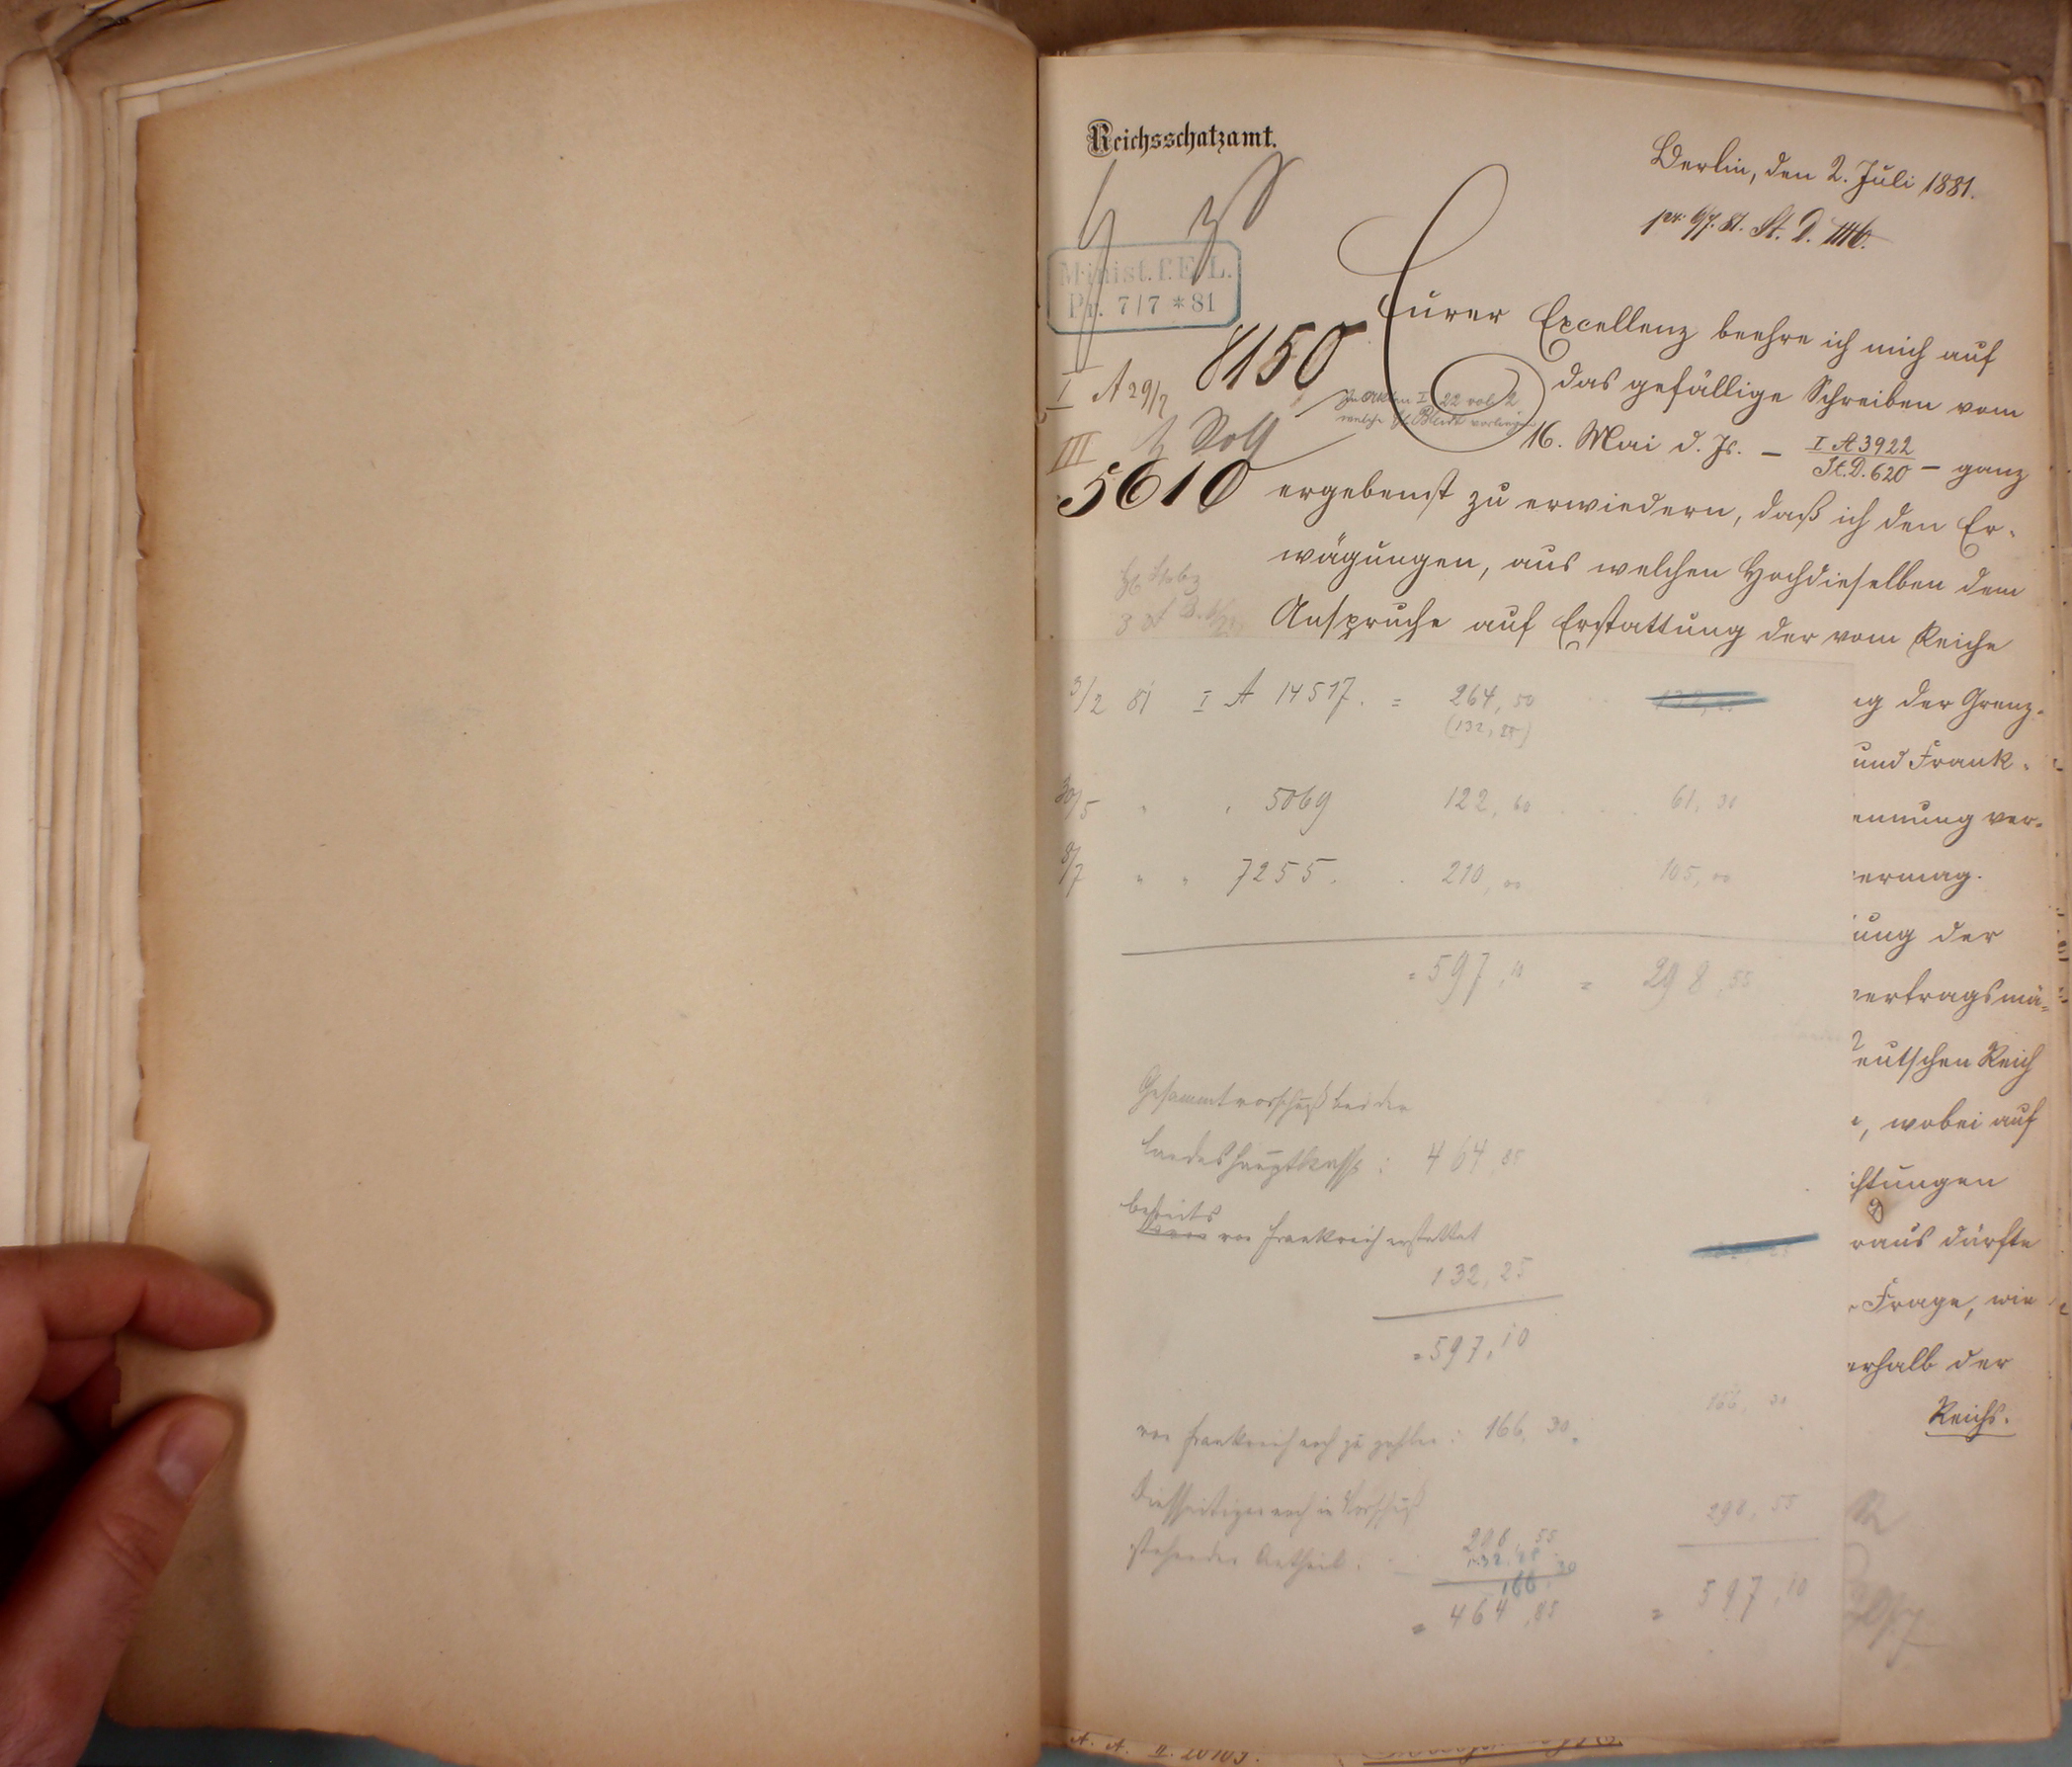 Reichsschatzamt.
Berlin, den 2. Juli 1881.
pr. 6/7. 81. St. D.
Minist. f. E. L.
Pr. 7/7 * 81
8150
I A 29/7
III
5610
Eurer Excellenz beehre ich mich auf
das gefällige Schreiben vom
16. Mai d. Js. – I A 3922 / St. D. 620 – ganz
ergebenst zu erwiedern, daß ich den Er-
wägungen, aus welchen Hochdieselben dem
Anspruche auf Erstattung der vom Reiche
ig der Grenz-
und Frank-
ennung ver-
ermag.
ung der
ertragsmä-
eutschen Reich
, wobei auf
istungen
raus dürfte
Frage, wie
erhalb der
Reichs.
3/2 81 I A 14517. = 264,50
(132,25)
30/5 " " 5069 122,60 61,30
8/7 " " 7255. 210,00 105,00
= 597,10 = 298,55
Gesammtvorschuß bei der
Landeshauptkasse: 464,85
bereits
von Frankreich erstattet
132,25
= 597,10
von Frankreich noch zu zahlen: 166,30.
166,30
Diesseitiger noch im Vorschuß
stehender Antheil. 298,55
132,25
166,30
= 464,85
298,55
= 597,10